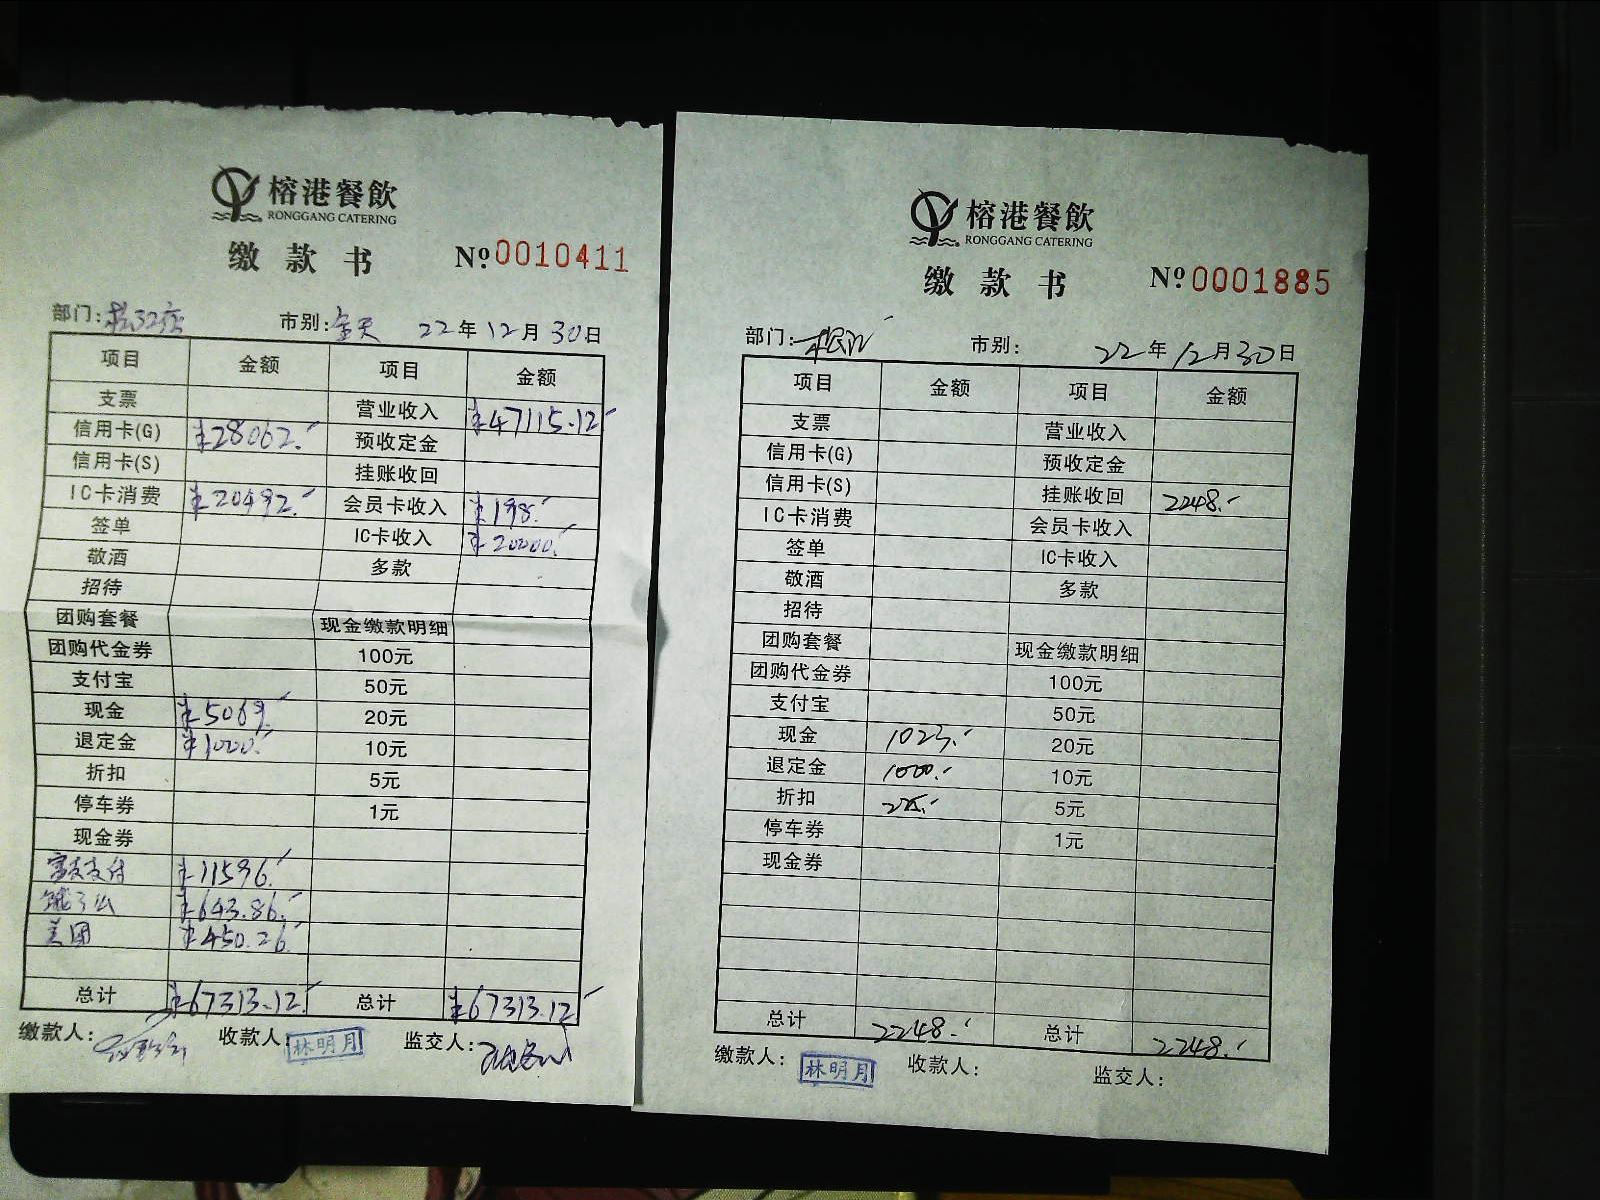 榕港餐飲
RONGGANG CATERING
缴款书 Nº 0010411
部门: 市别:全天 22年12月30日
项目 金额 项目 金额
支票 营业收入 ¥47115.12
信用卡(G) ¥28062.- 预收定金
信用卡(S) 挂账收回
IC卡消费 ¥20492.- 会员卡收入 ¥198.-
签单 IC卡收入 ¥20000.-
敬酒 多款
招待
团购套餐 现金缴款明细
团购代金券 100元
支付宝 50元
现金 ¥5069.- 20元
退定金 ¥1000.- 10元
折扣 5元
停车券 1元
现金券
¥11596.-
饿了么 ¥643.86
美团 ¥450.26
总计 ¥67313.12 总计 ¥67313.12
缴款人: 收款人: 林明月 监交人:
榕港餐飲
RONGGANG CATERING
缴款书 Nº 0001885
部门: 市别: 22年12月30日
项目 金额 项目 金额
支票 营业收入
信用卡(G) 预收定金
信用卡(S) 挂账收回 2248.-
IC卡消费 会员卡收入
签单 IC卡收入
敬酒 多款
招待
团购套餐 现金缴款明细
团购代金券 100元
支付宝 50元
现金 1023.- 20元
退定金 1000.- 10元
折扣 225.- 5元
停车券 1元
现金券
总计 2248.- 总计 2248.-
缴款人: 林明月 收款人: 监交人: